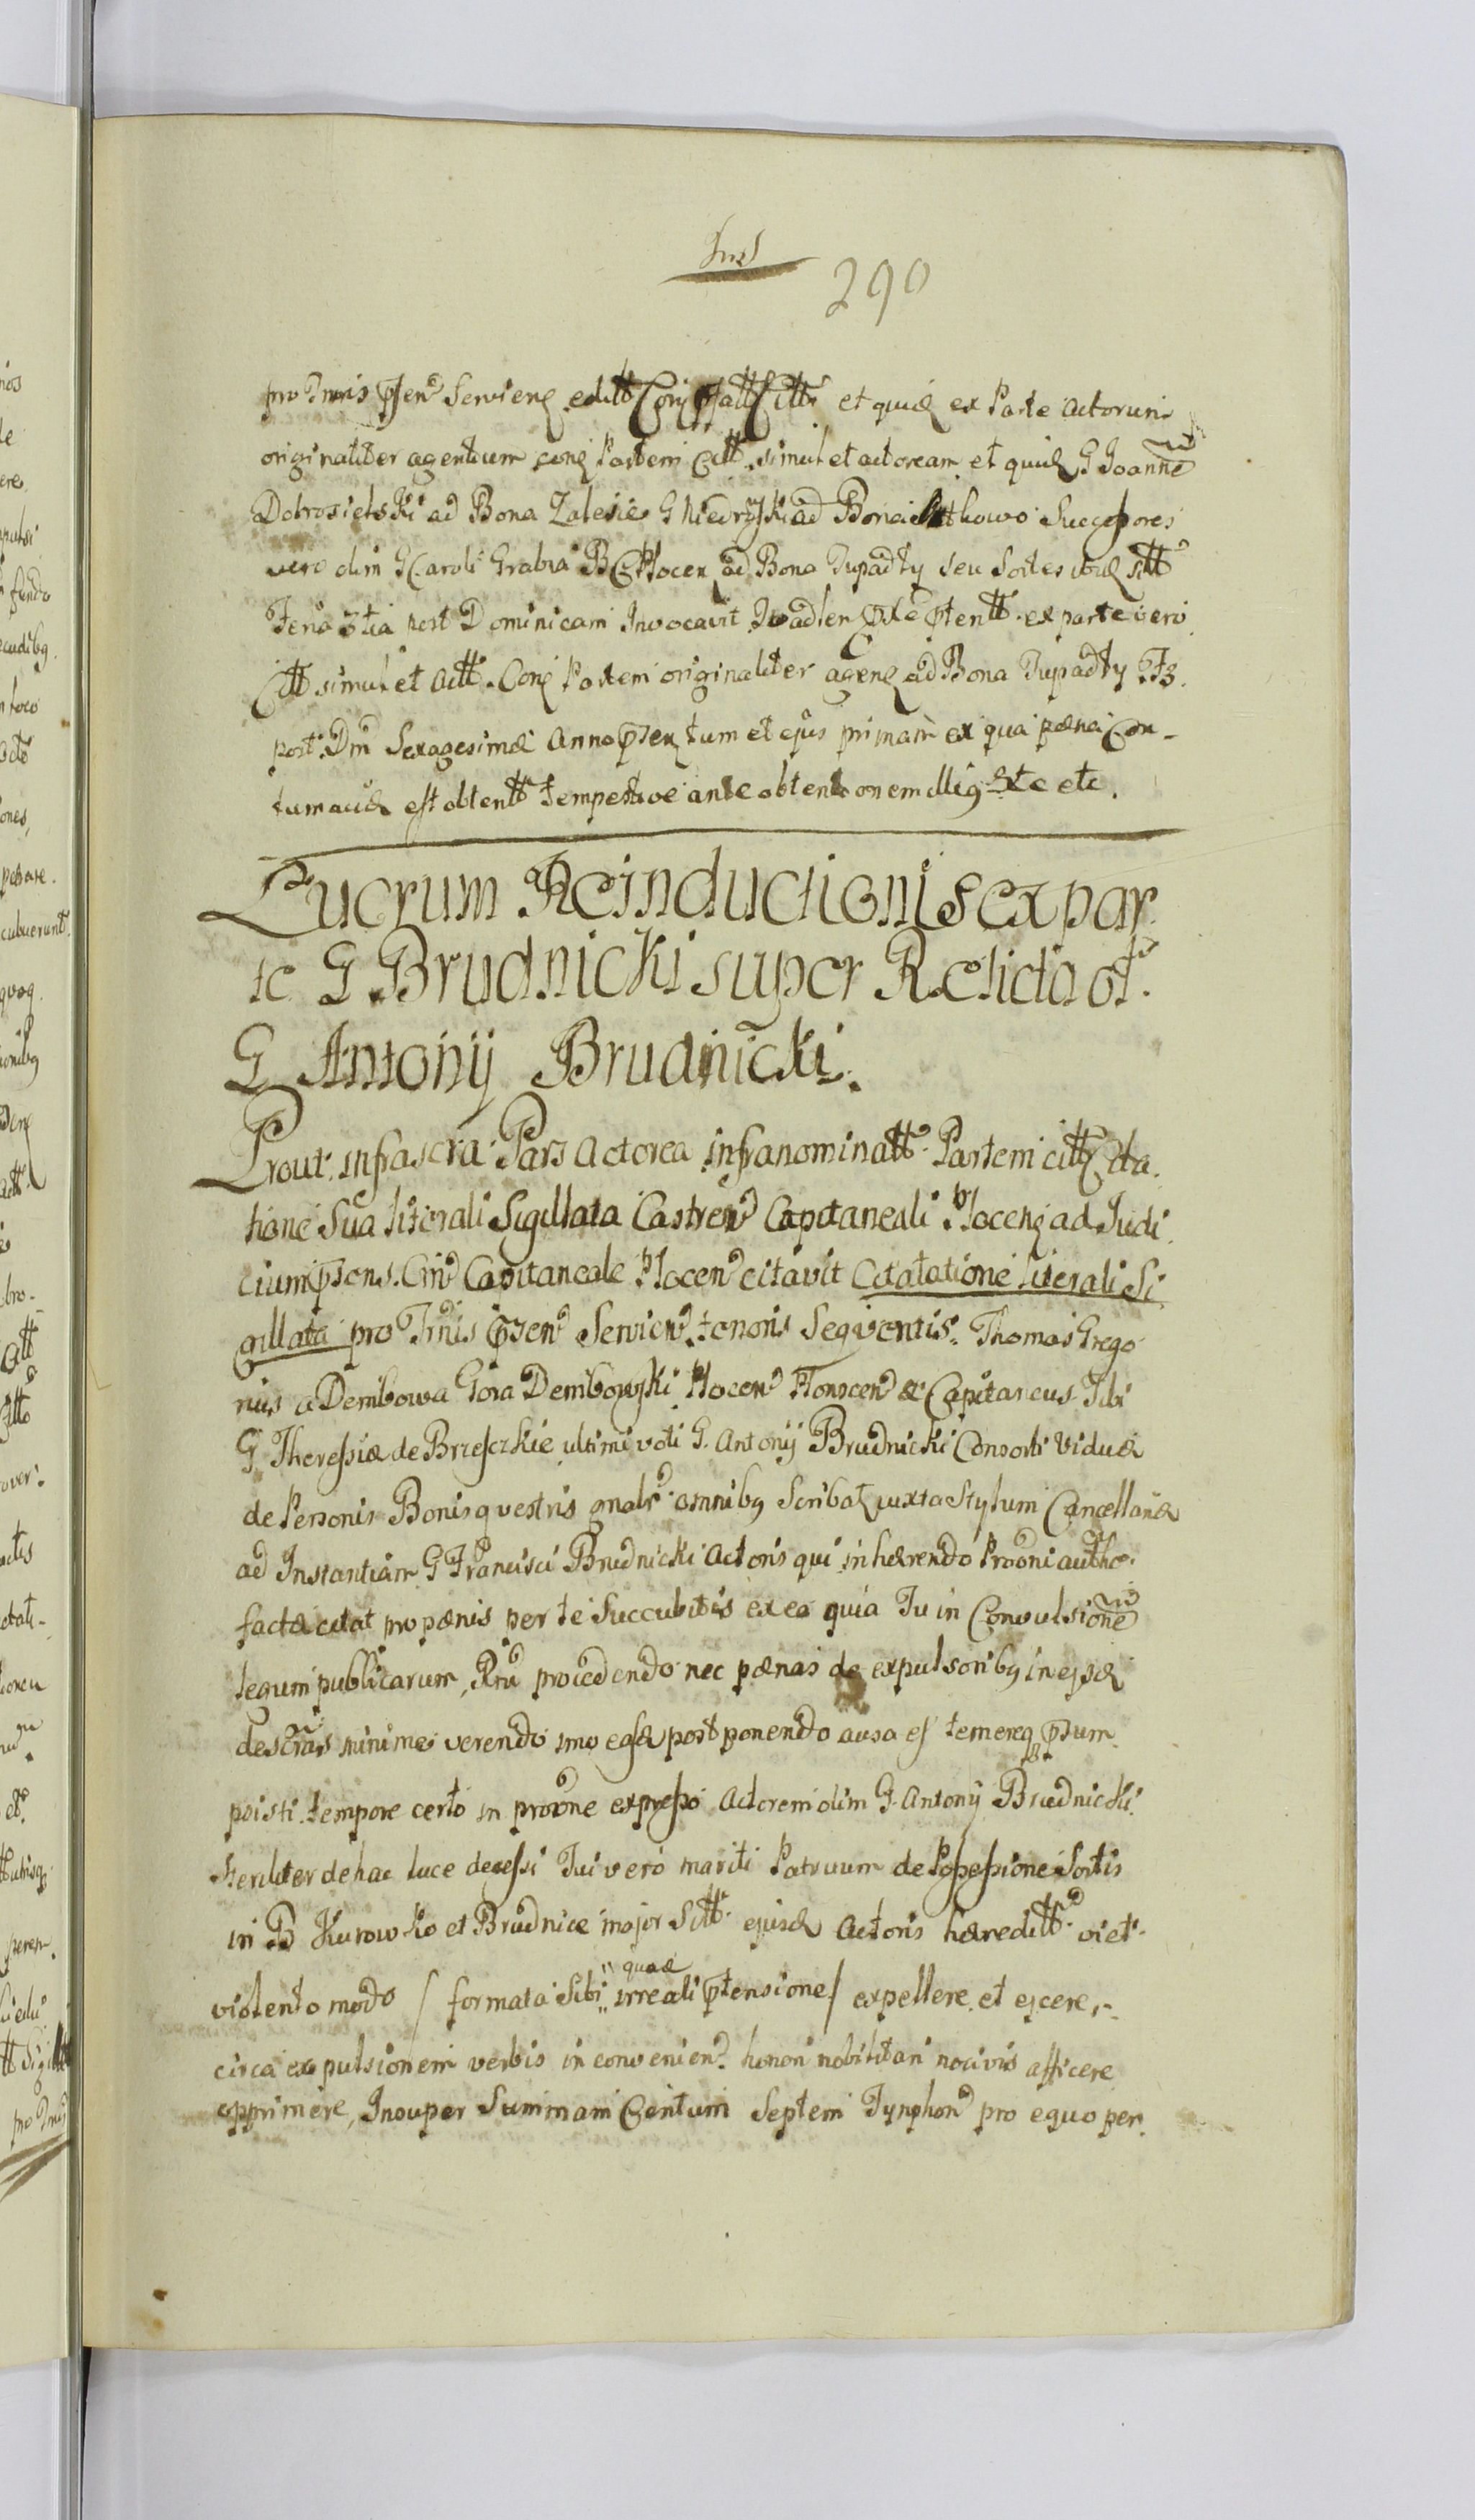 290
pro Trnis pten Servien editt Conj Citt et quid ex Parte Actorum
originaliter agentium conq Partem Citt. simul et actoream et quid G Joanne
Dobrosielski ad Bona Zalesie G Niedrzski ad Bona Successores
vero olim G Caroli Grabia B C Plocen ad Bona Tupadły seu Sortes ibid sitt
Feria 3tia post Dominicam Invocavit ptentt. ex parte vero
Citt simul et Actt. Conq Partem originaliter agenq ad Bona Tupadły F3.
post. Dm Sexagesimæ Anno tum et ejus primam ex qua pæna Con-
tumaciæ est obtentt tempestive ante obtentionem illiq Exte etc.
Lucrum Reinductionis ex par
te G. Brudnicki super Relicta ol.
G Antonij Brudnicki.
Prout infrascra Pars Actorea infranominatt. Partem citt Cita.
tione Sua literali Sigillata Castren Capitaneali Plocenq ad Judi
cium ptens. Cas Capitaneale Plocen citavit Citatatione literali Si
gillata pro Trnis pten Servien. tenoris Sequentis. Thomas Grego
rius a Dembowa Gora Dembowski Plocen Płonscen & Capitaneus Tibi
G. Theressiæ de Brzesczkie ultimi voti G. Antonij Brudnicki Consorti Viduæ
de Personis Bonisq vestris gnalr omnibq Scribat juxta Stylum Cancellariæ
ad Instantiam G Francisci Brudnicki Actoris qui inhærendo Prooni autho.
factæ citat pro pænis per te Succubitis ex eo quia Tu in Convulsione
legum publicarum, procedendo nec pænas de expulsoribq in ejsd
descras minime verendo imo easd postponendo ausa es temereq psum
psisti. tempore certo in proone expresso Actorem olim G. Antonij Brudnicki.
steriliter de hac luce decessi Tui vero mariti Patruum de Possessione Sortis
in B Kurowko et Brudnice major Sitt. ejusd Actoris hæreditt. vi et
violento modo / formata Sibi " quadam irreali ptensione / expellere et ejicere,-
circa expulsionem verbis inconvenien. honori nobilitari nocivis afficere
opprimere, Insuper Summam Centum Septem Tynphon pro equo per.